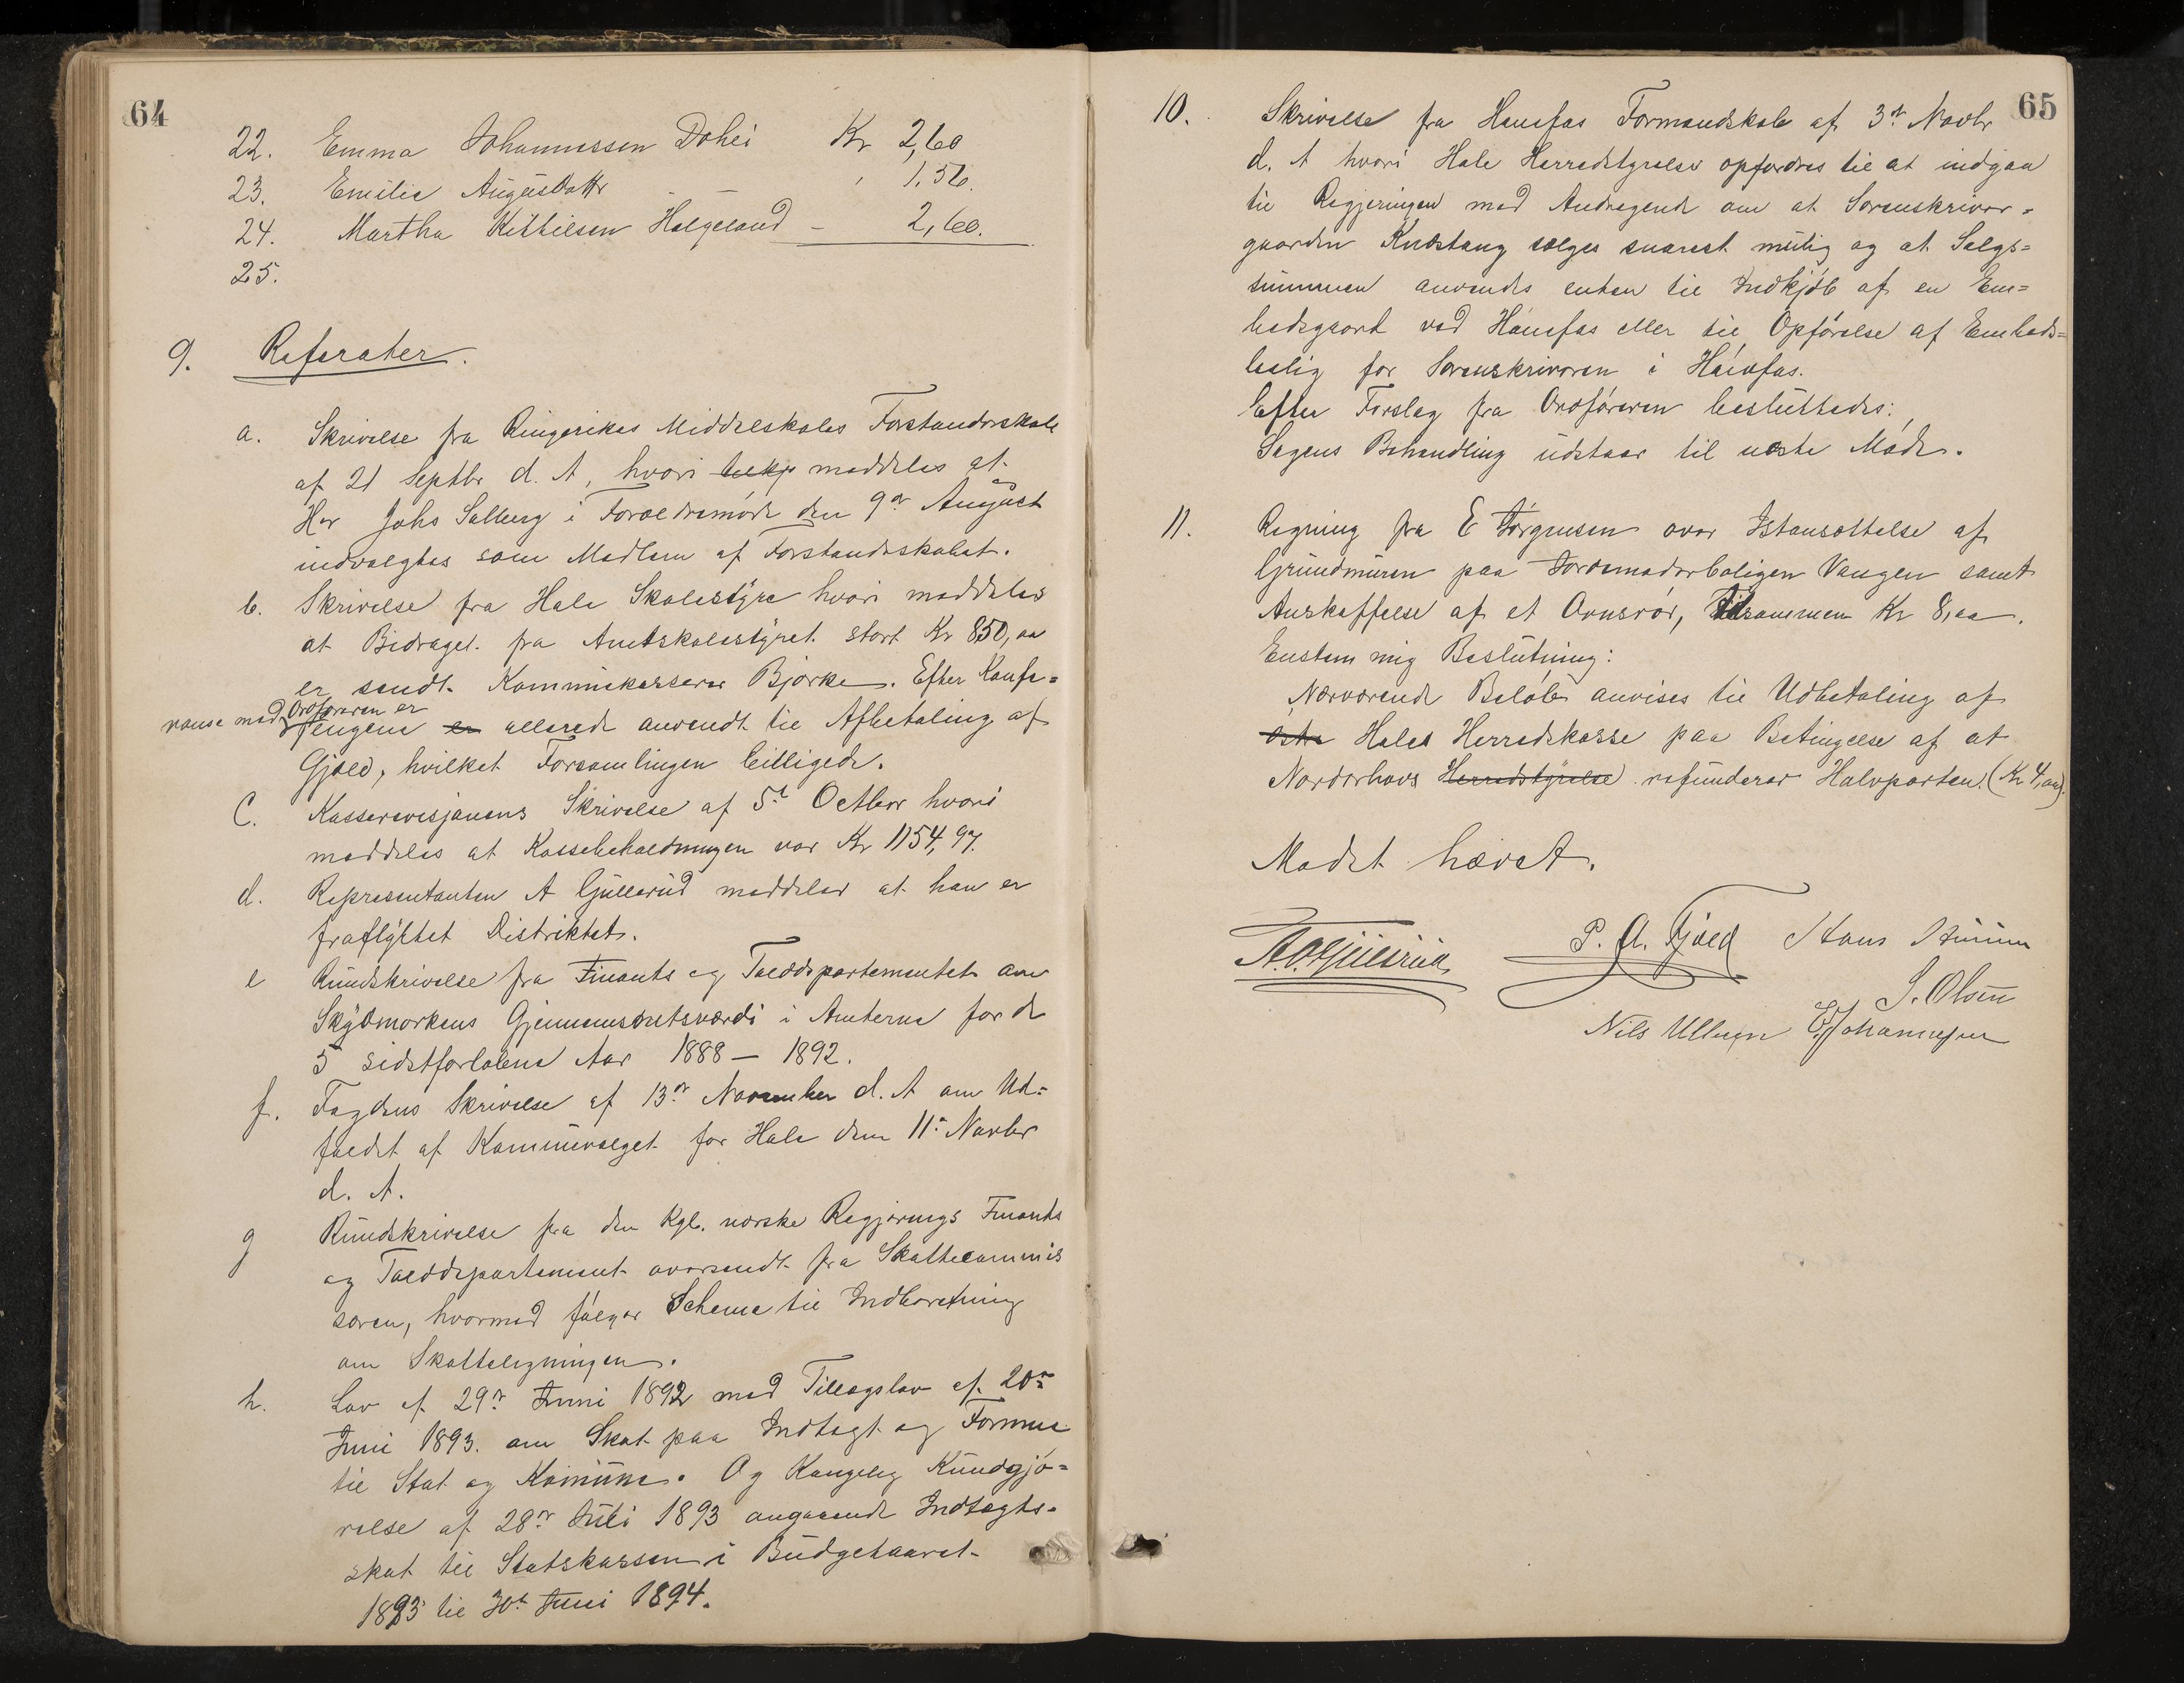 64
22. Emma Johannessen Dohei Kr 2,60
23. Emilie Augustdattr , 1.56.
24. Martha Kittilsen Helgeland – 2,60.
25.
9. Referater.
a. Skrivelse fra Ringerikes Middelskoles Forstanderskab
af 21 Septbr d. A, hvori meddeles at
Hr Johs Solberg i Foreldremøde den 9de August
indvalgtes som Medlem af Forstanderskabet.
b. Skrivelse fra Hole Skolestyre hvori meddeles
at Bidraget fra Amtskolestyret stort Kr 850,00
er sendt Kommunekasserer Bjørke. Efter Konfe=
ranse med Ordføreren er
Pengene er allerede anvendt til Afbetaling af
Gjæld, hvilket Forsamlingen billigede.
C. Kasserevisjonens Skrivelse af 5te Octbr hvori
meddeles at Kassebeholdningen var Kr 1154,97.
d. Representanten A Gullerud meddeler at han er
fraflyttet Distriktet.
e Rundskrivelse fra Finants og Tolddepartementet om
Skyldmarkens Gjennemsnitsværdi i Amterne for de
5 sidstforløbne Aar 1888 – 1892.
f. Fogdens Skrivelse af 13de November d. A om Ud=
faldet af Kommunevalget for Hole den 11te Novbr
d. A.
g Rundskrivelse fra den Kgl. norske Regjerings Finants
og Tolddepartement oversendt fra Skattecommis
særen, hvormed følger Schema til Indberetning
om Skatteligningen.
h. Lov af 29de Juni 1892 med Tillægslov af 20de
Juni 1893. om Skat paa Indtægt og Formue
til Stat og Komune. Og Kongelig Kundgjø=
relse af 28de Juli 1893 angaaende Indtægts=
skat til Statskassen i Budgetaaret
1893 til 30te Juni 1894.
65
10. Skrivelse fra Hønefos Formandskab af 3de Novbr
d. A hvori Hole Herredstyrelse opfordres til at indgaa
til Regjeringen med Andragende om at Sorenskriver=
gaarden Knestang sælges snarest mulig og at Salgs=
summen anvendes enten til Indkjøb af en Em=
bedsgaard ved Hønefos eller til Opførelse af Embeds=
bolig for Sorenskriveren i Hønefos.
Efter Forslag fra Ordføreren besluttedes:
Sagens Behandling udstaar til næste Møde.
11. Regning fra E Jørgensen over Istansættelse af
Grundmuren paa Jordemoderboligen Vangen samt
Anskaffelse af et Ovnsrør, Tilsammen Kr 8,00.
Enstemmig Beslutning:
Nærværende Beløb anvises til Udbetaling af
Holes Herredskasse paa Betingelse af at
Norderhovs Herredstyrelse refunderer Halvparten. (Kr 4,00).
Mødet hævet.
P. A. Fjeld Hans
S. Olsen
Nils Ullern E Johannesen